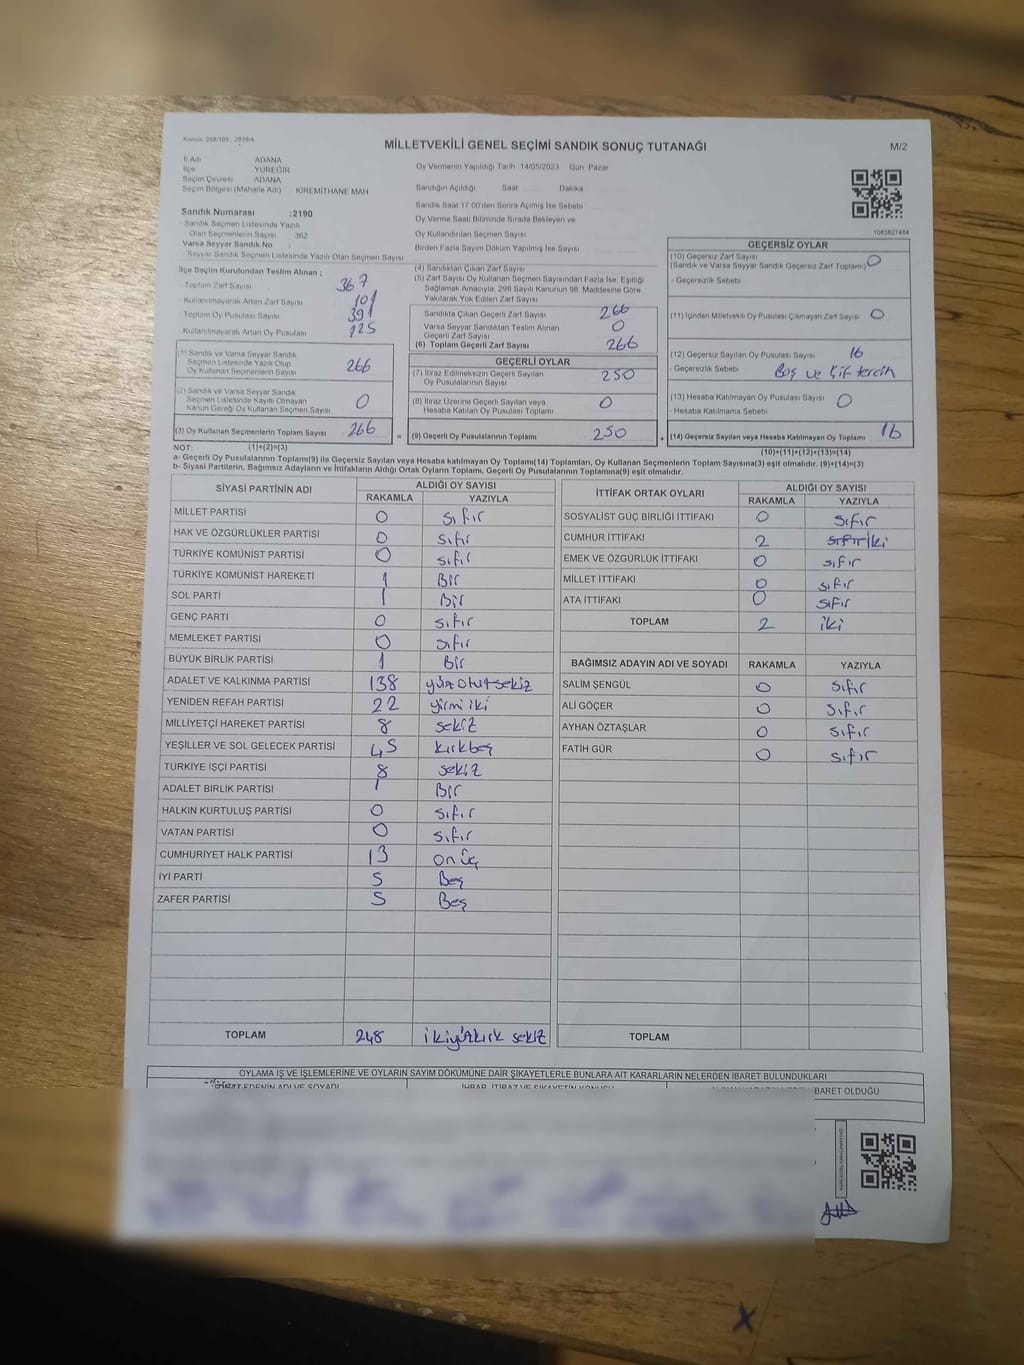 MİLLETVEKİLİ GENEL SEÇİMİ SANDIK SONUÇ TUTANAĞI
M/2
İl Adı ADANA
İlçe YÜREĞİR
Seçim Çevresi ADANA
Seçim Bölgesi (Mahalle Adı) KİREMİTHANE MAH
Sandık Numarası :2190
Sandık Seçmen Listesinde Yazılı
Olan Seçmenlerin Sayısı 362
Varsa Seyyar Sandık No :
Seyyar Sandık Seçmen Listesinde Yazılı Olan Seçmen Sayısı
Oy Vermenin Yapıldığı Tarih 14/05/2023 Gün Pazar
Sandığın Açıldığı Saat Dakika
Sandık Saat 17.00'den Sonra Açılmış İse Sebebi
Oy Verme Saati Bitiminde Sırada Bekleyen ve
Oy Kullandırılan Seçmen Sayısı
Birden Fazla Sayım Döküm Yapılmış İse Sayısı
1083827484
İlçe Seçim Kurulundan Teslim Alınan ;
Toplam Zarf Sayısı 367
Kullanılmayarak Artan Zarf Sayısı 101
Toplam Oy Pusulası Sayısı 391
Kullanılmayarak Artan Oy Pusulası 125
(1) Sandık ve Varsa Seyyar Sandık
Seçmen Listesinde Yazılı Olup
Oy Kullanan Seçmenlerin Sayısı 266
(2) Sandık ve Varsa Seyyar Sandık
Seçmen Listesinde Kayıtlı Olmayan
Kanun Gereği Oy Kullanan Seçmen Sayısı 0
(3) Oy Kullanan Seçmenlerin Toplam Sayısı 266
(4) Sandıktan Çıkan Zarf Sayısı
(5) Zarf Sayısı Oy Kullanan Seçmen Sayısından Fazla İse, Eşitliği
Sağlamak Amacıyla, 298 Sayılı Kanunun 98. Maddesine Göre
Yakılarak Yok Edilen Zarf Sayısı
Sandıkta Çıkan Geçerli Zarf Sayısı 266
Varsa Seyyar Sandıktan Teslim Alınan
Geçerli Zarf Sayısı 0
(6) Toplam Geçerli Zarf Sayısı 266
GEÇERLİ OYLAR
(7) İtiraz Edilmeksizin Geçerli Sayılan
Oy Pusulalarının Sayısı 250
(8) İtiraz Üzerine Geçerli Sayılan veya
Hesaba Katılan Oy Pusulası Toplamı 0
= (9) Geçerli Oy Pusulalarının Toplamı 250
GEÇERSİZ OYLAR
(10) Geçersiz Zarf Sayısı 0
(Sandık ve Varsa Seyyar Sandık Geçersiz Zarf Toplamı)
- Geçersizlik Sebebi
(11) İçinden Milletvekili Oy Pusulası Çıkmayan Zarf Sayısı 0
(12) Geçersiz Sayılan Oy Pusulası Sayısı 16
- Geçersizlik Sebebi Boş ve Çift tercih
(13) Hesaba Katılmayan Oy Pusulası Sayısı 0
- Hesaba Katılmama Sebebi
+ (14) Geçersiz Sayılan veya Hesaba Katılmayan Oy Toplamı 16
NOT: (1)+(2)=(3)
(10)+(11)+(12)+(13)=(14)
a- Geçerli Oy Pusulasının Toplamı(9) ile Geçersiz Sayılan veya Hesaba katılmayan Oy Toplamı(14) Toplamları, Oy Kullanan Seçmenlerin Toplam Sayısına(3) eşit olmalıdır. (9)+(14)=(3)
b- Siyasi Partilerin, Bağımsız Adayların ve İttifakların Aldığı Ortak Oyların Toplamı, Geçerli Oy Pusulalarının Toplamına(9) eşit olmalıdır.
SİYASİ PARTİNİN ADI ALDIĞI OY SAYISI
RAKAMLA YAZIYLA
MİLLET PARTİSİ 0 sıfır
HAK VE ÖZGÜRLÜKLER PARTİSİ 0 sıfır
TÜRKİYE KOMÜNİST PARTİSİ 0 sıfır
TÜRKİYE KOMÜNİST HAREKETİ 1 Bir
SOL PARTİ 1 Bir
GENÇ PARTİ 0 sıfır
MEMLEKET PARTİSİ 0 sıfır
BÜYÜK BİRLİK PARTİSİ 1 Bir
ADALET VE KALKINMA PARTİSİ 138 yüzotuzsekiz
YENİDEN REFAH PARTİSİ 22 yirmi iki
MİLLİYETÇİ HAREKET PARTİSİ 8 sekiz
YEŞİLLER VE SOL GELECEK PARTİSİ 45 kırkbeş
TÜRKİYE İŞÇİ PARTİSİ 8 sekiz
ADALET BİRLİK PARTİSİ 1 Bir
HALKIN KURTULUŞ PARTİSİ 0 sıfır
VATAN PARTİSİ 0 sıfır
CUMHURİYET HALK PARTİSİ 13 on üç
İYİ PARTİ 5 Beş
ZAFER PARTİSİ 5 Beş
TOPLAM 248 ikiyüzkırk sekiz
İTTİFAK ORTAK OYLARI ALDIĞI OY SAYISI
RAKAMLA YAZIYLA
SOSYALİST GÜÇ BİRLİĞİ İTTİFAKI 0 sıfır
CUMHUR İTTİFAKI 2 sıfır iki
EMEK VE ÖZGÜRLÜK İTTİFAKI 0 sıfır
MİLLET İTTİFAKI 0 sıfır
ATA İTTİFAKI 0 sıfır
TOPLAM 2 iki
BAĞIMSIZ ADAYIN ADI VE SOYADI RAKAMLA YAZIYLA
SALİM ŞENGÜL 0 sıfır
ALİ GÖÇER 0 sıfır
AYHAN ÖZTAŞLAR 0 sıfır
FATİH GÜR 0 sıfır
TOPLAM
OYLAMA İŞ VE İŞLEMLERİNE VE OYLARIN SAYIM DÖKÜMÜNE DAİR ŞİKAYETLERLE BUNLARA AİT KARARLARIN NELERDEN İBARET BULUNDUKLARI
İTİRAZ EDENİN ADI VE SOYADI İHBAR, İTİRAZ VE ŞİKAYETİN KONUSU İBARET OLDUĞU